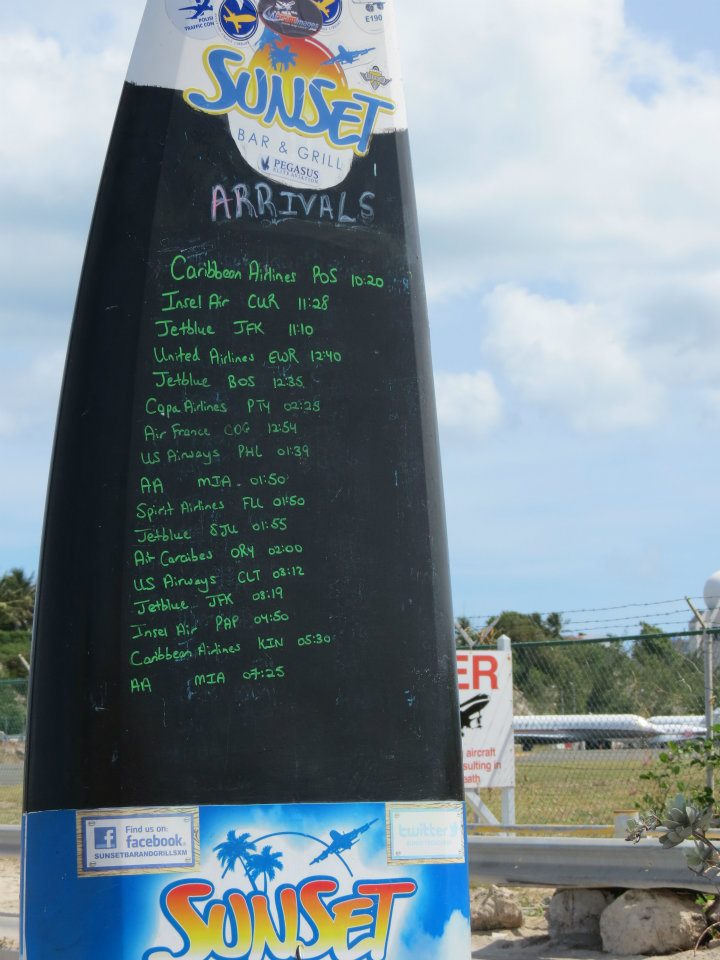 E190
SUNSET
BAR & GRILL
PEGASUS
ARRIVALS
Caribbean Airlines POS 10:20
Insel Air CUR 11:28
Jetblue JFK 11:10
United Airlines EWR 12:40
Jetblue BOS 12:35
Copa Airlines PTY 02:28
Air France COG 12:54
US Airways PHL 01:39
AA MIA 01:50
Spirit Airlines FLL 01:50
Jetblue SJU 01:55
Air Caraibes ORY 02:00
US Airways CLT 03:12
Jetblue JFK 03:19
Insel Air PAP 04:50
Caribbean Airlines KIN 05:30
AA MIA 07:25
ER
aircraft
sulting in
eath
Find us on:
facebook
SUNSETBARANDGRILLSXM
twitter
SUNSET